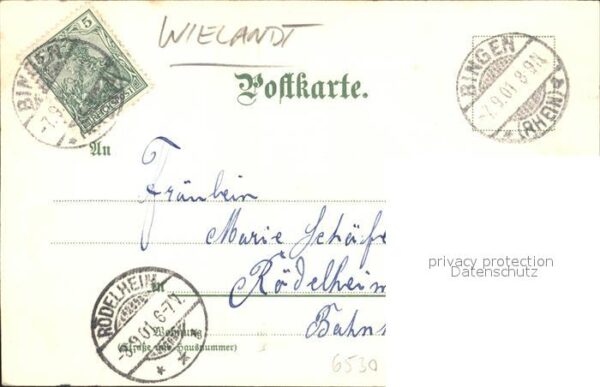 WIELANDT
5
BINGEN
7.9.01
REICHSPOST
Postkarte.
BINGEN
-7.9.01 8-9N.
*(RHEIN)*
An
Fräulein
Marie Schäfe
in Rödelheim
RÖDELHEIM
-8.9.01. 6-7V.
* *
Bahns
Wohnung
(Straße und Hausnummer)
6530
privacy protection
Datenschutz